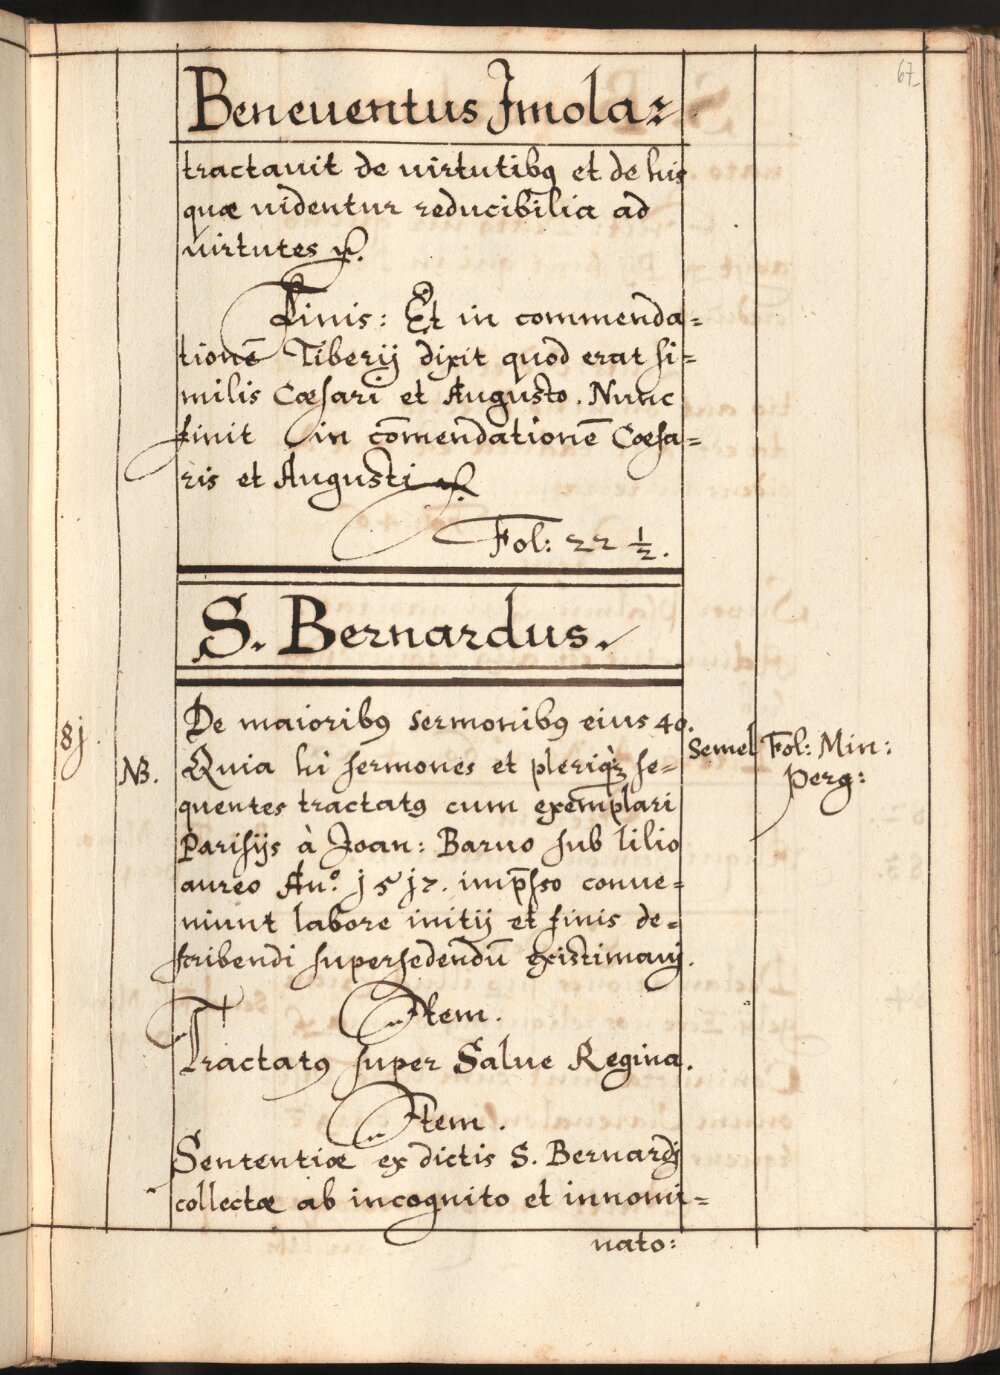 67
Beneuentus Jmola:
tractauit de uirtutibꝯ et de his
quæ uidentur reducibilia ad
uirtutes ꝛc.
Finis: Et in commenda=
tionē Tiberij dixit quod erat si=
milis Cæsari et Augusto. Nunc
finit in cōmendationē Cæsa=
ris et Augusti ꝛc.
Fol: 22 1/2.
S. Bernardus.
8j.
De maioribꝯ sermonibꝯ eius 40.
Semel
Fol: Min:
Perg:
NB.
Quia hi sermones et pleriqꝫ se=
quentes tractatꝯ cum exemplari
Parisijs à Joan: Baruo sub lilio
aureo An.º j5j7. imp̄sso conue=
niunt labore initij et finis de=
scribendi supersedendū existimauj.
Jtem.
Tractatꝯ super Salue Regina.
Jtem.
Sententiæ ex dictis S. Bernardj
collectæ ab incognito et innomi=
nato: